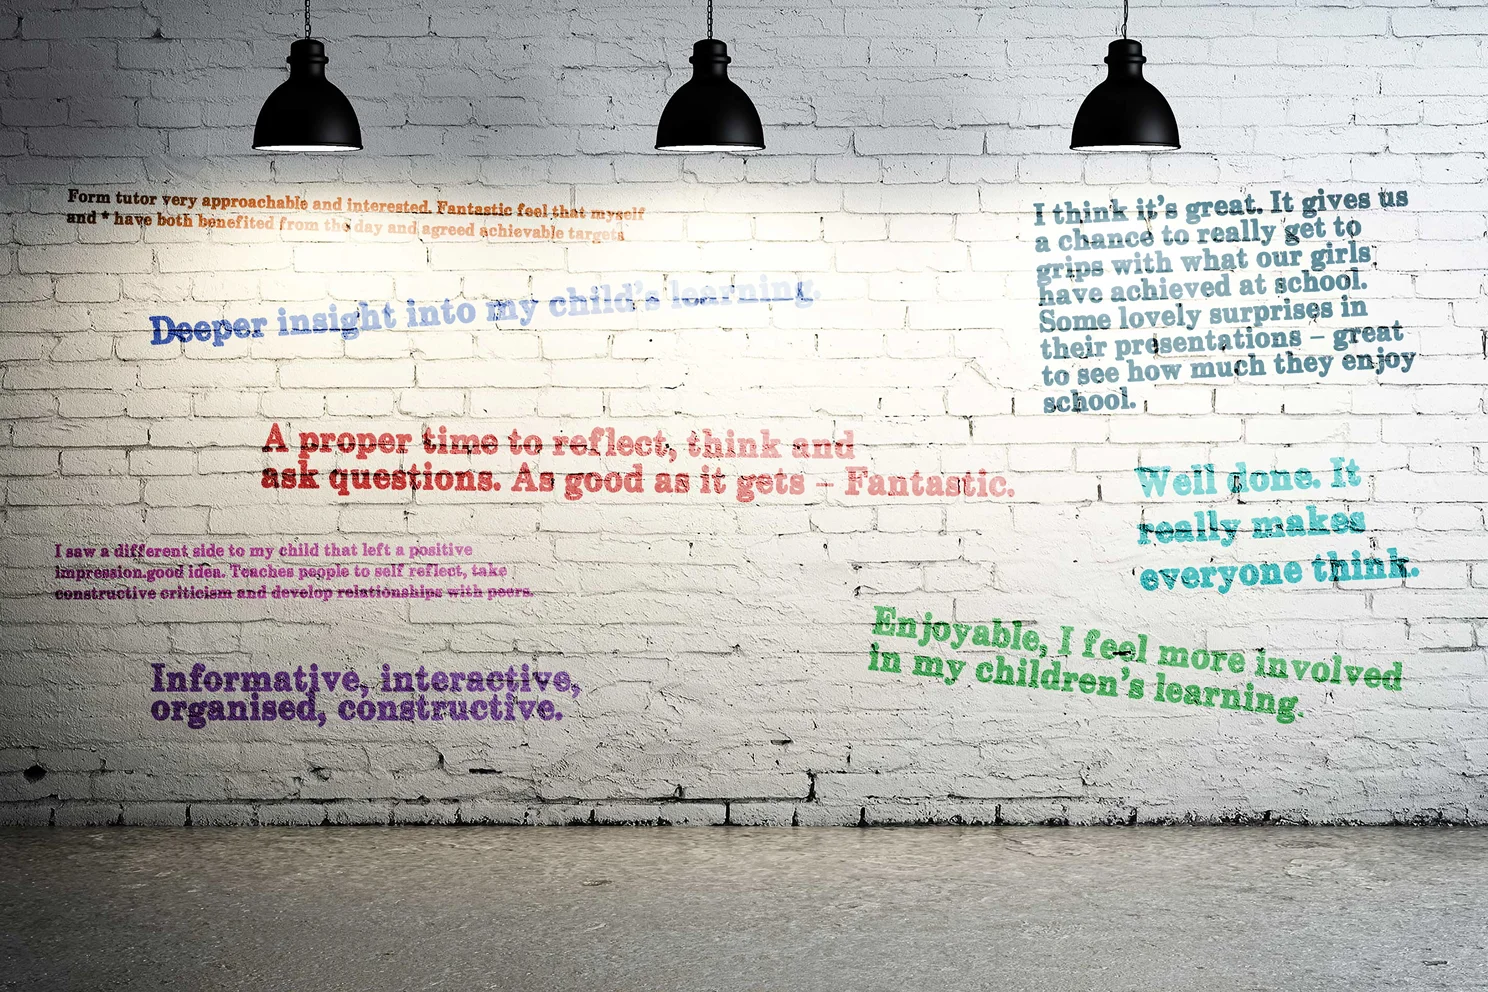 Form tutor very approachable and interested. Fantastic feel that myself
and * have both benefited from the day and agreed achievable targets
Deeper insight into my child's learning.
A proper time to reflect, think and
ask questions. As good as it gets – Fantastic.
I saw a different side to my child that left a positive
impression.good idea. Teaches people to self reflect, take
constructive criticism and develop relationships with peers.
Informative, interactive,
organised, constructive.
I think it's great. It gives us
a chance to really get to
grips with what our girls
have achieved at school.
Some lovely surprises in
their presentations – great
to see how much they enjoy
school.
Well done. It
really makes
everyone think.
Enjoyable, I feel more involved
in my children's learning.